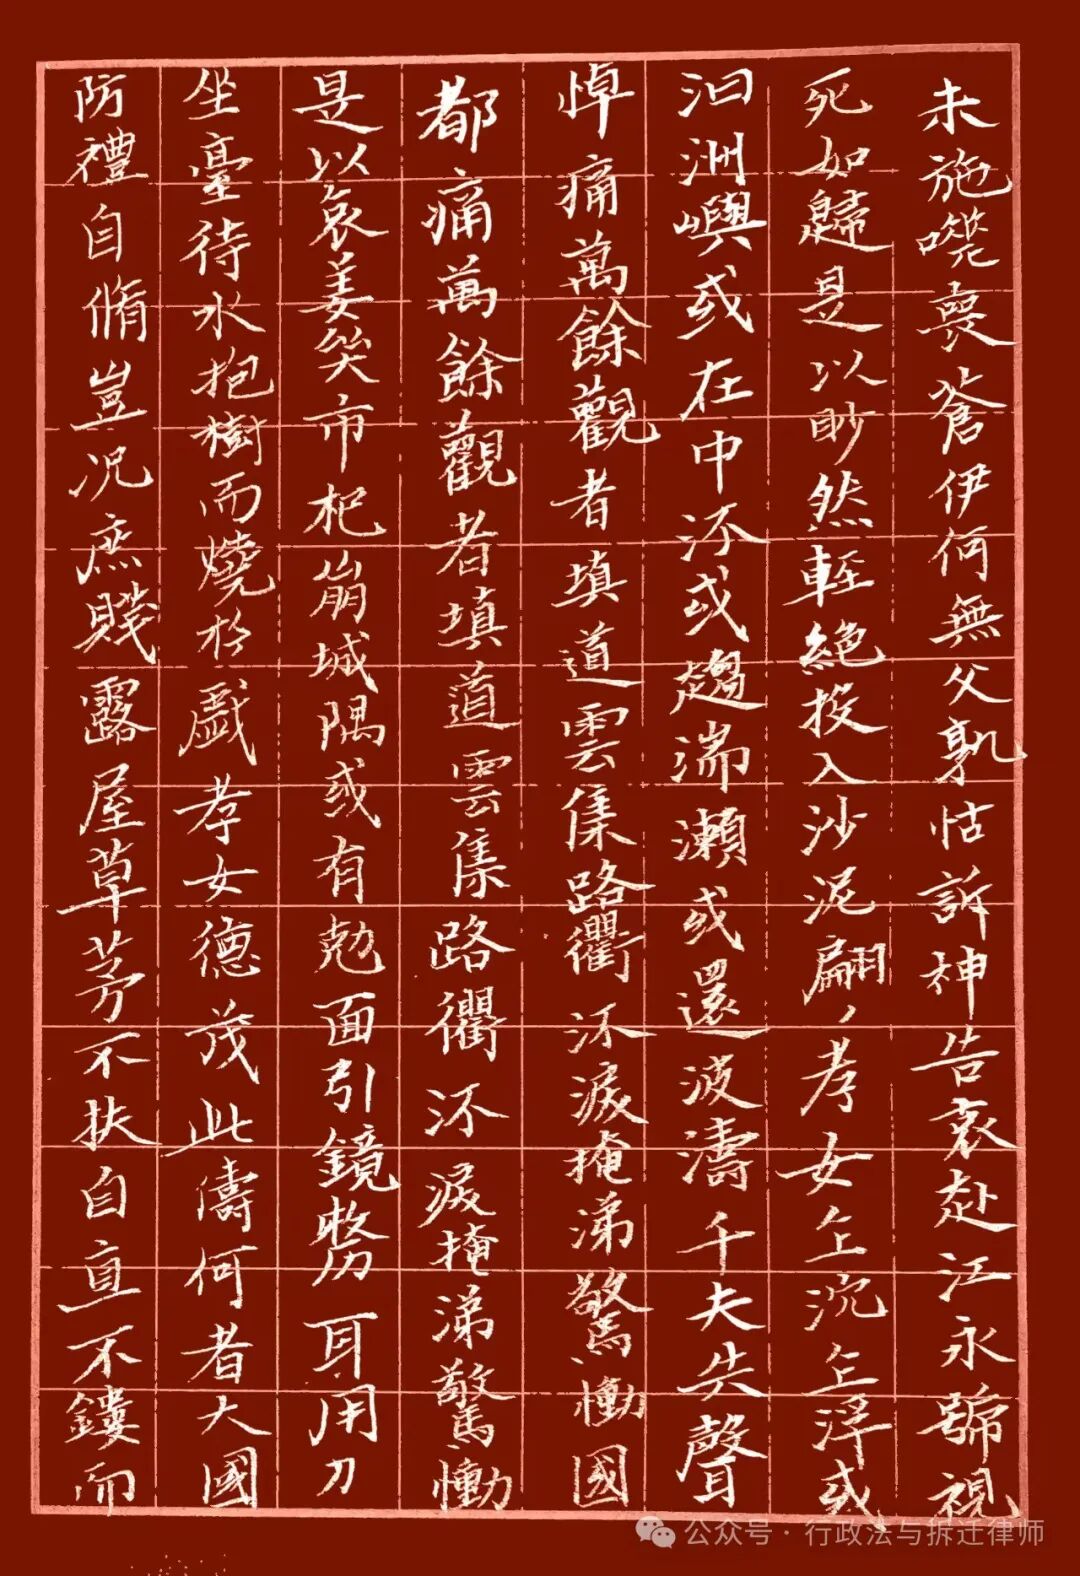 未施嗟喪蒼伊何無父孰怙訴神告哀赴江永號視
死如歸是以眇然輕絕投入沙泥翩〻孝女乍沉乍浮或
泊洲嶼或在中流或趨湍瀨或還波濤千夫失聲
悼痛萬餘觀者填道雲集路衢流淚掩涕驚慟國
都痛萬餘觀者填道雲集路衢流淚掩涕驚慟
是以哀姜哭市杞崩城隅或有剋面引鏡剺耳用刀
坐臺待水抱樹而燒於戲孝女德茂此儔何者大國
防禮自脩豈況庶賤露屋草茅不扶自直不鏤而
公众号·行政法与拆迁律师